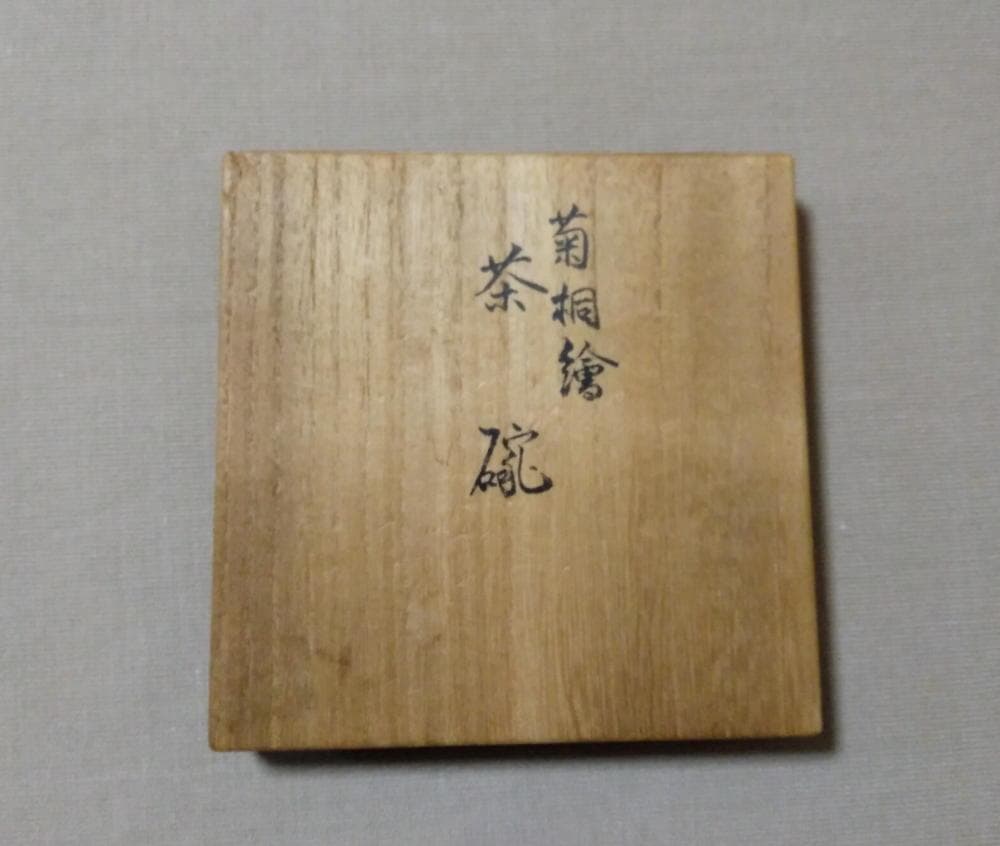 菊桐繪
茶碗